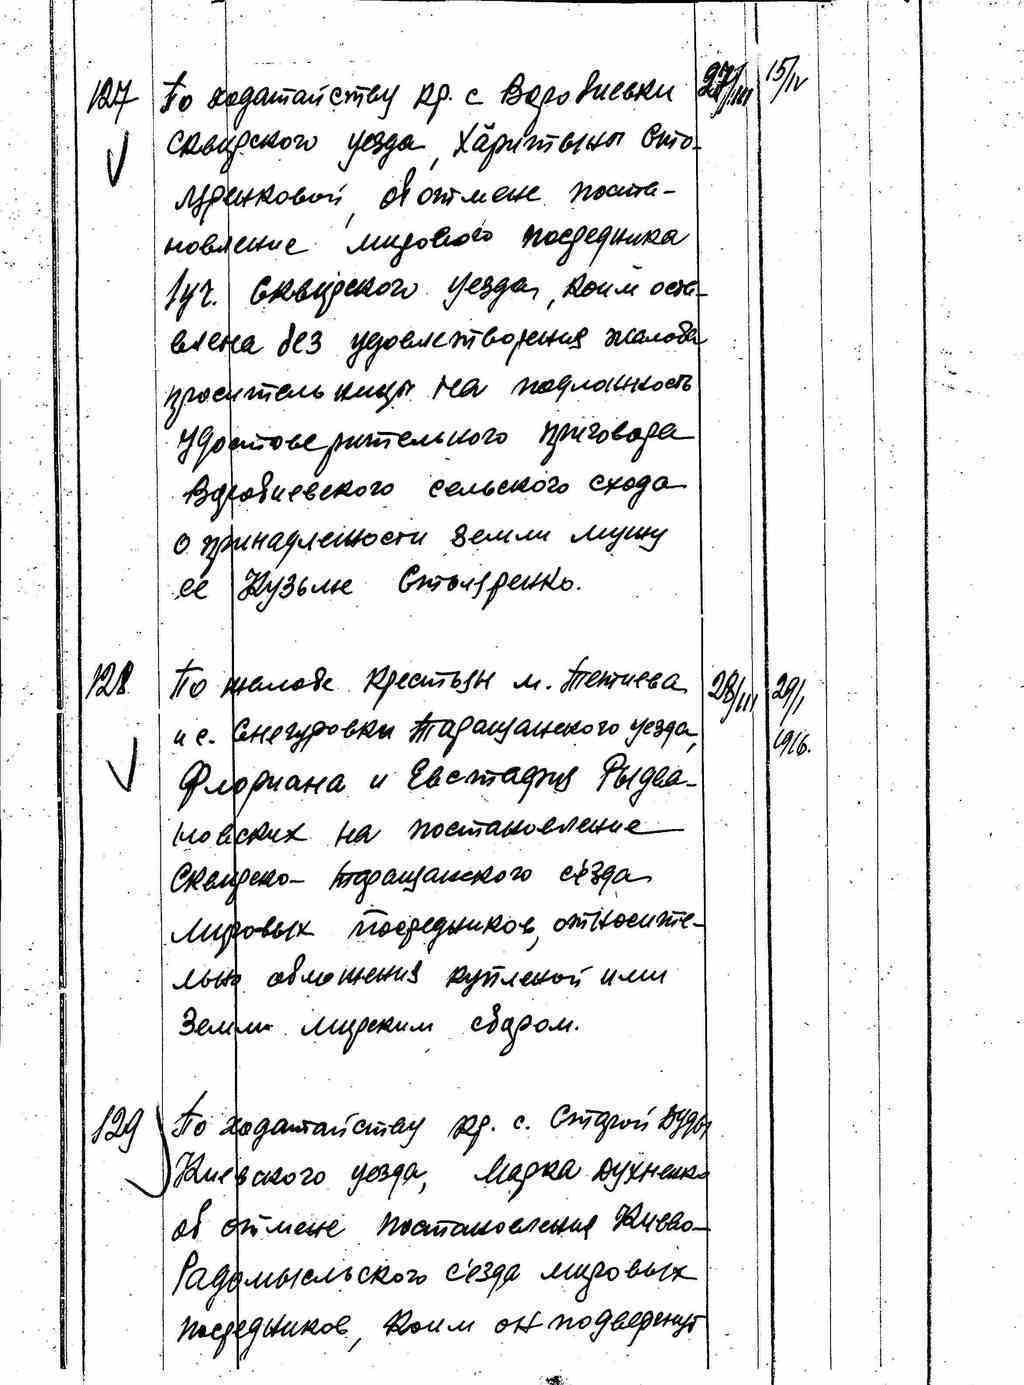 127 По ходатайству кр. с Воробиевки 27/III 15/IV
Сквирского уезда, Харитины Сто-
ляренковой, об отмене поста-
новление мирового посредника
1 уч. Сквирского уезда, коим оста-
влена без удовлетворения жалоба
просительницы на подложность
удостоверительного приговора
Воробиевского сельского схода
о принадлежности земли мужу
ее Кузьме Столяренко.
128 По жалобе крестьян м. Тетиева 28/III 29/I
и с. Снегуровки Таращанского уезда, 1916.
Флориана и Евстафия Рыдва-
новских на постановление
Сквирско-Таращанского съезда
мировых посредников, относите-
льно обложения купленой ими
земли мирским сбором.
129 По ходатайству кр. с. Старой Буды
Киевского уезда, Марка Духненко
об отмене постановления Киево-
Радомысльского съезда мировых
посредников, коим он подвергнут